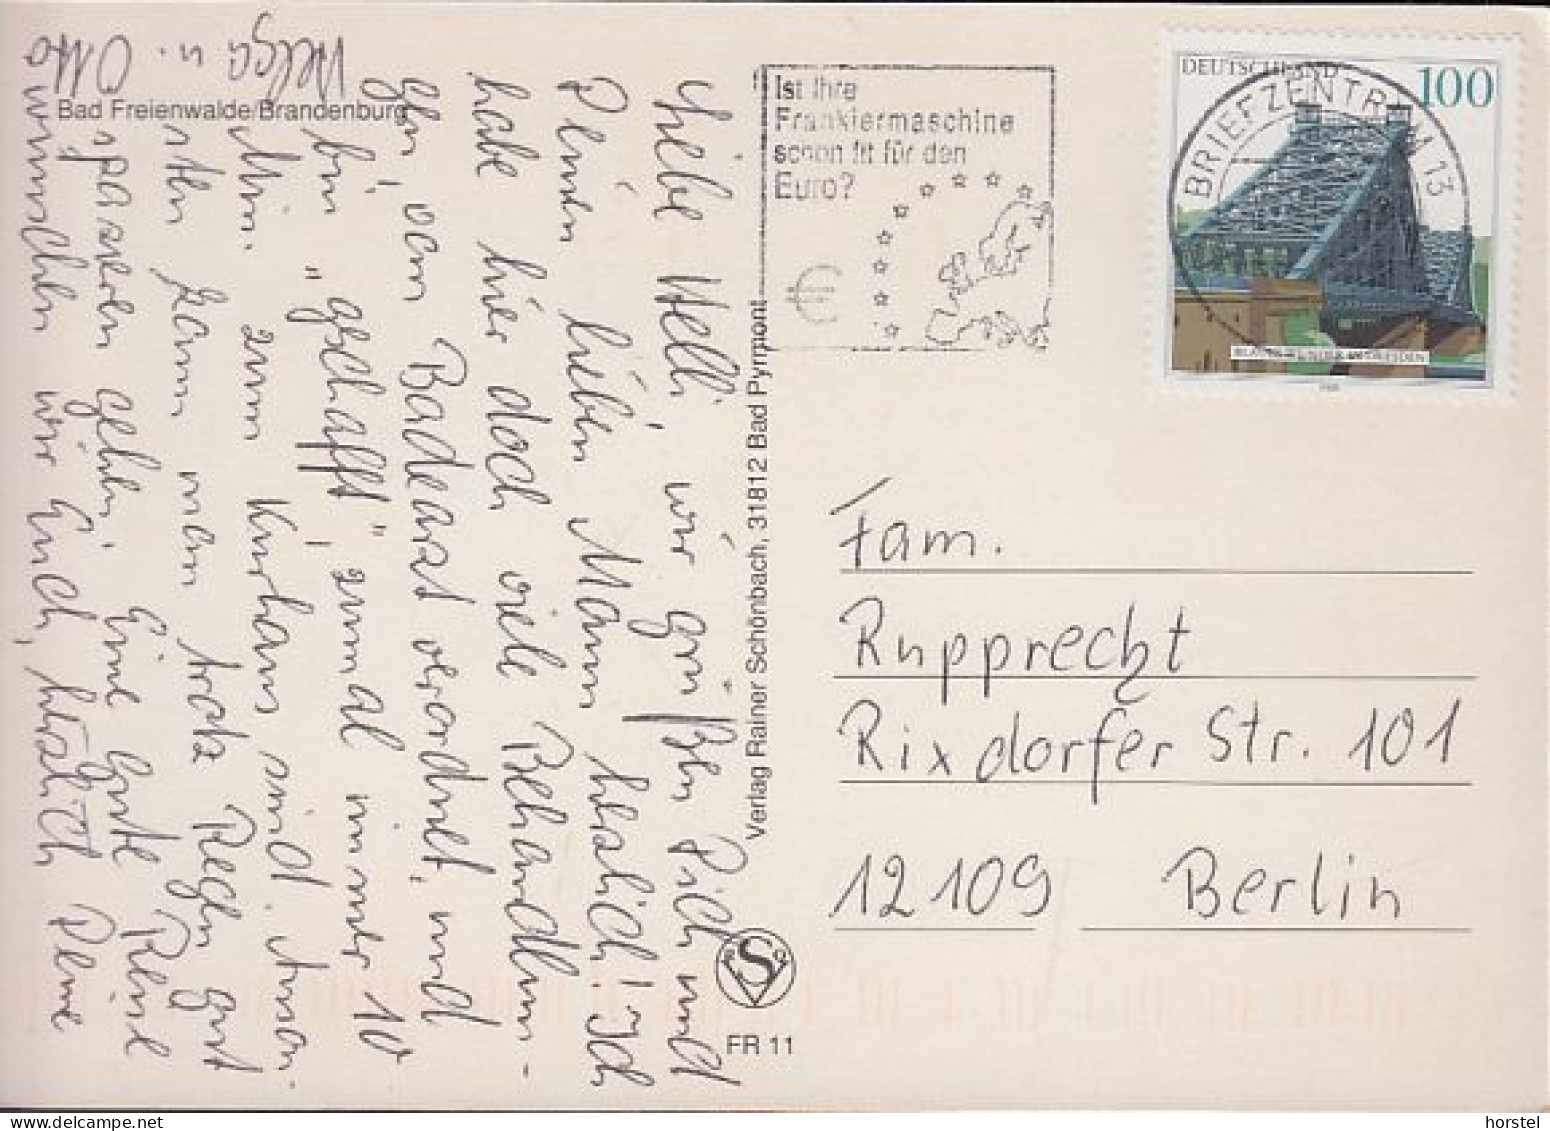 Liebe Helli, wir grüßen Dich und
Deinen lieben Mann herzlich! Ich
habe hier doch viele Behandlun-
gen, vom Badearzt verordnet, und
bin "geschafft", zumal immer 10
Min. zum Kurhaus sind. Anson-
sten kann man trotz Regen gut
spazieren gehen. Eine gute Reise
wünschen wir Euch, herzlich Deine
Helga u. Otto
Bad Freienwalde/Brandenburg
Verlag Rainer Schönbach, 31812 Bad Pyrmont
S
FR 11
Ist Ihre
Frankiermaschine
schon fit für den
Euro?
€
BRIEFZENTRUM 13
DEUTSCHLAND 100
BLAUES WUNDER IN DRESDEN
Fam.
Rupprecht
Rixdorfer Str. 101
12109 Berlin
horstel